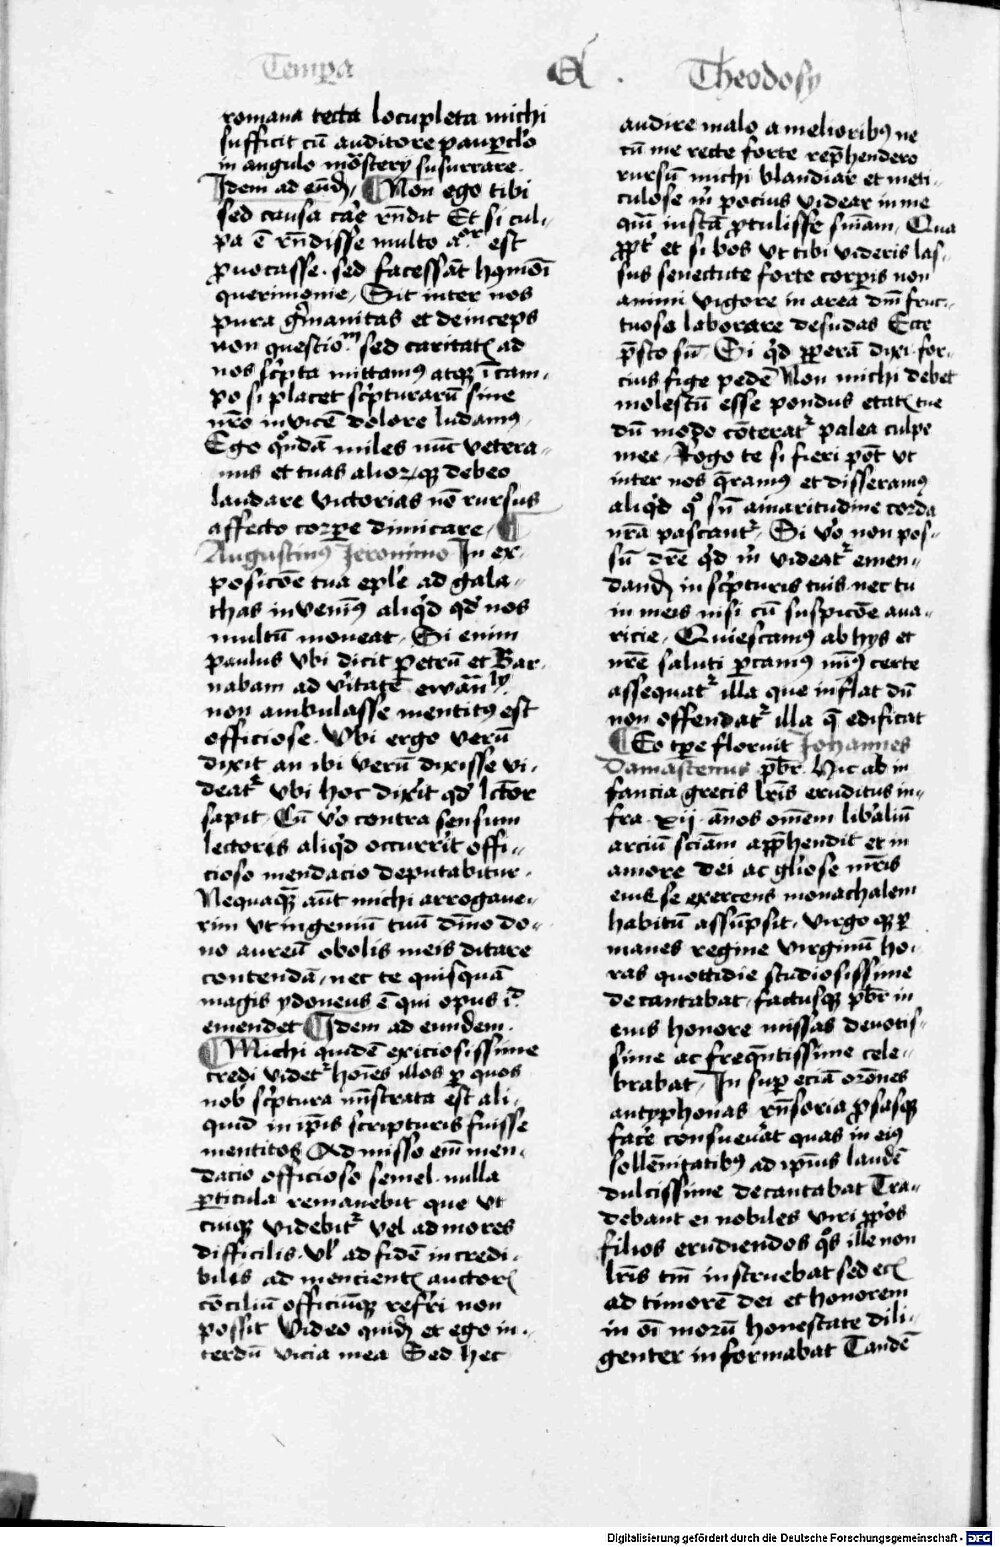 Tempora
Theodosy
romana tecta locupleta michi
sufficit cū auditore paupclo
in angulo mōstery susurrare.
Idem ad eūdē Non ego tibi
sed causa cāe rn̄dit Et si cul-
pa ē rn̄disse multo aᵒʳ est
ꝓuocasse. sed facessāt hꝰmōi
querimonie, Sit inter nos
pura gͥmanitas et deinceps
non questioᵐ sed caritatꝭ ad
nos scͥpta mittamꝰ atqꝫ ī cam-
po si placet scͥpturarū sine
nr̄o inuicē dolore ludamꝰ
Ego qͦndā miles nūc vetera-
nus et tuas alioꝝqꝫ debeo
laudare victorias nō rursus
affecto corꝑe dimicare,
Augustinꝰ Jeronimo In ex-
posicōe tua eple ad gala-
thas inuenimꝰ aliqͥd qd nos
multū moueat. Si enim
paulus vbi dicit petrū et Bar-
nabam ad vͥitatē ewan̄ly
non ambulasse mentitꝰ est
officiose. Vbi ergo verū
dixit an ibi verū dixisse vi-
deatᷣ vbi hoc dixͥit qd lc̄tor
sapit. Cū vͦo contra sensum
lectoris aliqͥd occurrͥit offi-
cioso mendacio deputabitur.
Nequaqͣꝫ aūt michi arrogaue-
rim vt ingeniū tuū dīno do-
no aureū obolis meis ditare
contendā, nec te quisquā
magis ydoneus ē qui opus iᵈ
emendet Idem ad eundem.
Michi quidē exiciosissime
credi videtᷣ hoīes illos ꝑ quos
nob̄ scͥptura mīstrata est ali-
quid in ip̄is scripturis fuisse
mentitos Admisso em̄ men-
dacio officioso semel. nulla
ꝑticula remanebit que vt
cuiqꝫ videbitᷣ vel ad mores
difficilis. vl̄ ad fidē incredi-
bilis ad mencientꝭ auctorꝭ
cōciliū officiūqꝫ refͥri non
possit Video quidē et ego in-
terdū vicia mea Sed hec
audire malo a melioribꝰ ne
cū me recte forte rep̄hendero
rursū michi blandiar et meti-
culose mͥ pocius videar in me
quā iustā ꝓtulisse snīam, Qua
ꝓpt̄ et si bos vt tibi videris las-
sus senectute forte corꝑis non
animi vigore in area dnī fruc-
tuose laborare desudas Ecce
p̄sto sū Si qͥd ꝓperā dixi. for-
cius fige pedē Non michi debet
molestū esse pondus etatꝭ tue
dū modo cōteratᷣ palea culpe
mee, Rogo te si fieri pōt vt
inter nos qͣramꝰ et disseramꝰ
aliqͥd qͦ sn̄ amaritudine corda
nr̄a pascantᷣ. Si vͦo non pos-
sū dr̄e qͥd mͥ videatᷣ emen-
dandū in scͥpturis tuis. nec tu
in meis nisi cū suspicōe aua-
ricie, Quiescamꝰ ab hys et
nr̄e saluti ꝑcamꝰ mīꝰ certe
assequatᷣ illa que inflat dū
non offendatᷣ illa q̄ edificat
Eo tꝑe floruit Johannes
Damascenus pb̄r. Hic ab in-
fancia grecis lrīs eruditus in-
fra xij. ānos om̄em libͥaliū
arciū sciām app̄hendit et in
amore dei ac glͥiose mr̄is
eius se exercens monachalem
habitū assūpsit. Virgo qꝫ ꝑ
manes regine virginū ho-
ras quottidie studiosissime
decantabat, factusqꝫ pb̄r in
eius honore missas deuotis-
sime ac freqn̄tissime cele-
brabat, In suꝑ eciā orōnes
antyphonas rn̄soria ꝓsasqꝫ
facͥe consueuͥat quas in eiꝰ
sollēnitatibꝰ ad ip̄ius laudē
dulcissime decantabat Tra-
debant ei nobiles viri ꝓpͥos
filios erudiendos qͦs ille non
lrīs tm̄ instruebat sed ecꝭ
ad timorē dei et honorem
in oī morū honestate dili-
genter informabat Tandē
Digitalisierung gefördert durch die Deutsche Forschungsgemeinschaft - DFG